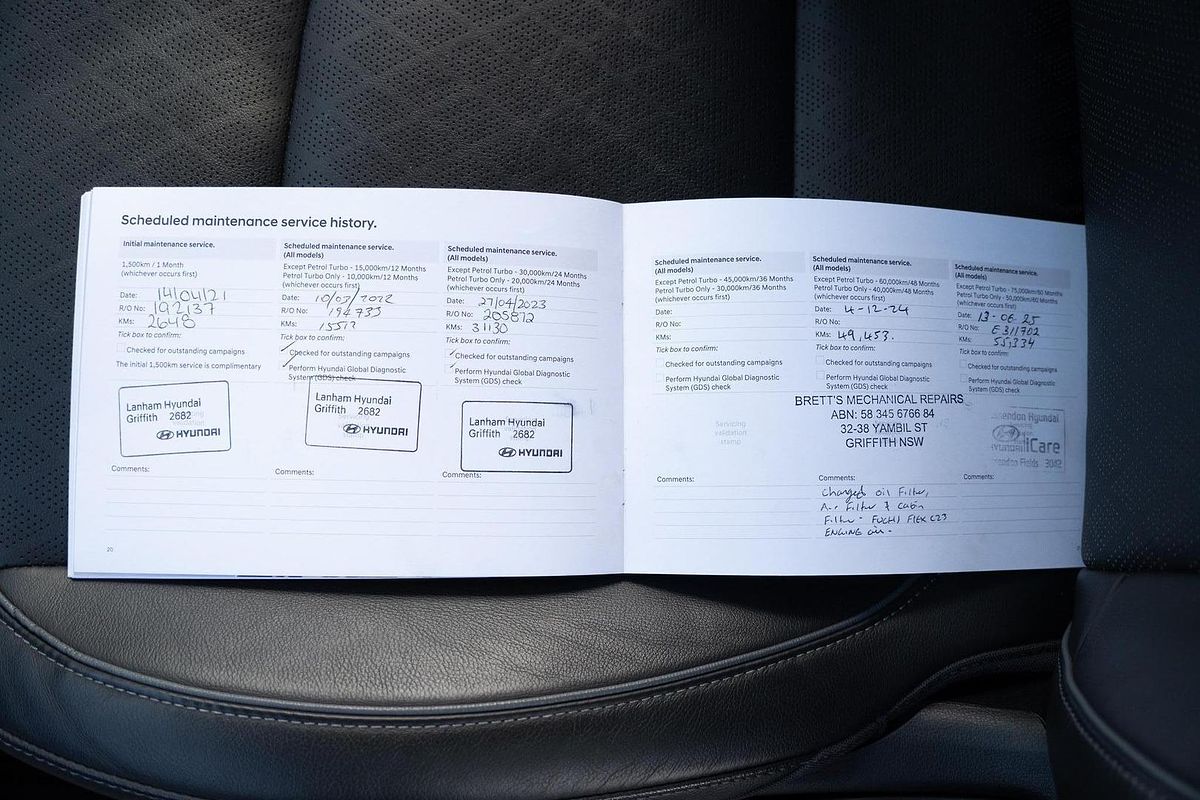 Scheduled maintenance service history.
Initial maintenance service.
1,500km / 1 Month
(whichever occurs first)
Date: 14/04/21
R/O No: 192137
KMs: 2648
Tick box to confirm:
Checked for outstanding campaigns
The initial 1,500km service is complimentary
Lanham Hyundai
Griffith 2682
HYUNDAI
Comments:
20
Scheduled maintenance service.
(All models)
Except Petrol Turbo - 15,000km/12 Months
Petrol Turbo Only - 10,000km/12 Months
(whichever occurs first)
Date: 10/03/2022
R/O No: 194735
KMs: 15513
Tick box to confirm:
Checked for outstanding campaigns
Perform Hyundai Global Diagnostic
System (GDS) check
Lanham Hyundai
Griffith 2682
HYUNDAI
Comments:
Scheduled maintenance service.
(All models)
Except Petrol Turbo - 30,000km/24 Months
Petrol Turbo Only - 20,000km/24 Months
(whichever occurs first)
Date: 27/04/2023
R/O No: 205872
KMs: 31130
Tick box to confirm:
Checked for outstanding campaigns
Perform Hyundai Global Diagnostic
System (GDS) check
Lanham Hyundai
Griffith 2682
HYUNDAI
Comments:
Scheduled maintenance service.
(All models)
Except Petrol Turbo - 45,000km/36 Months
Petrol Turbo Only - 30,000km/36 Months
(whichever occurs first)
Date:
R/O No:
KMs:
Tick box to confirm:
Checked for outstanding campaigns
Perform Hyundai Global Diagnostic
System (GDS) check
Servicing
validation
stamp
Comments:
Scheduled maintenance service.
(All models)
Except Petrol Turbo - 60,000km/48 Months
Petrol Turbo Only - 40,000km/48 Months
(whichever occurs first)
Date: 4-12-24
R/O No:
KMs: 49,453.
Tick box to confirm:
Checked for outstanding campaigns
Perform Hyundai Global Diagnostic
System (GDS) check
BRETT'S MECHANICAL REPAIRS
ABN: 58 345 6766 84
32-38 YAMBIL ST
GRIFFITH NSW
Comments:
Changed oil Filter,
Air Filter & Cabin
Filter - FUCHS FLEX C23
ENGINE oil -
Scheduled maintenance service.
(All models)
Except Petrol Turbo - 75,000km/60 Months
Petrol Turbo Only - 50,000km/60 Months
(whichever occurs first)
Date: 13-06-25
R/O No: E311702
KMs: 55,334
Tick box to confirm:
Checked for outstanding campaigns
Perform Hyundai Global Diagnostic
System (GDS) check
Hyundai
HYUNDAI iCare
Fields 3042
Comments: